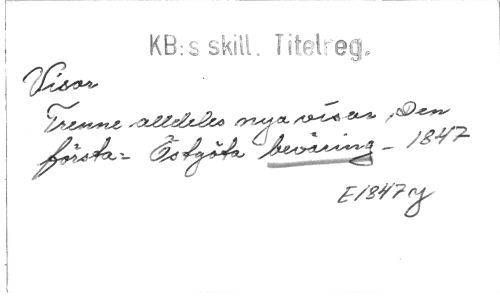 KB:s skill. Titelreg.
Visor
Trenne alldeles nya visor, Den
första = Östgöta beväring – 1847
E1847y